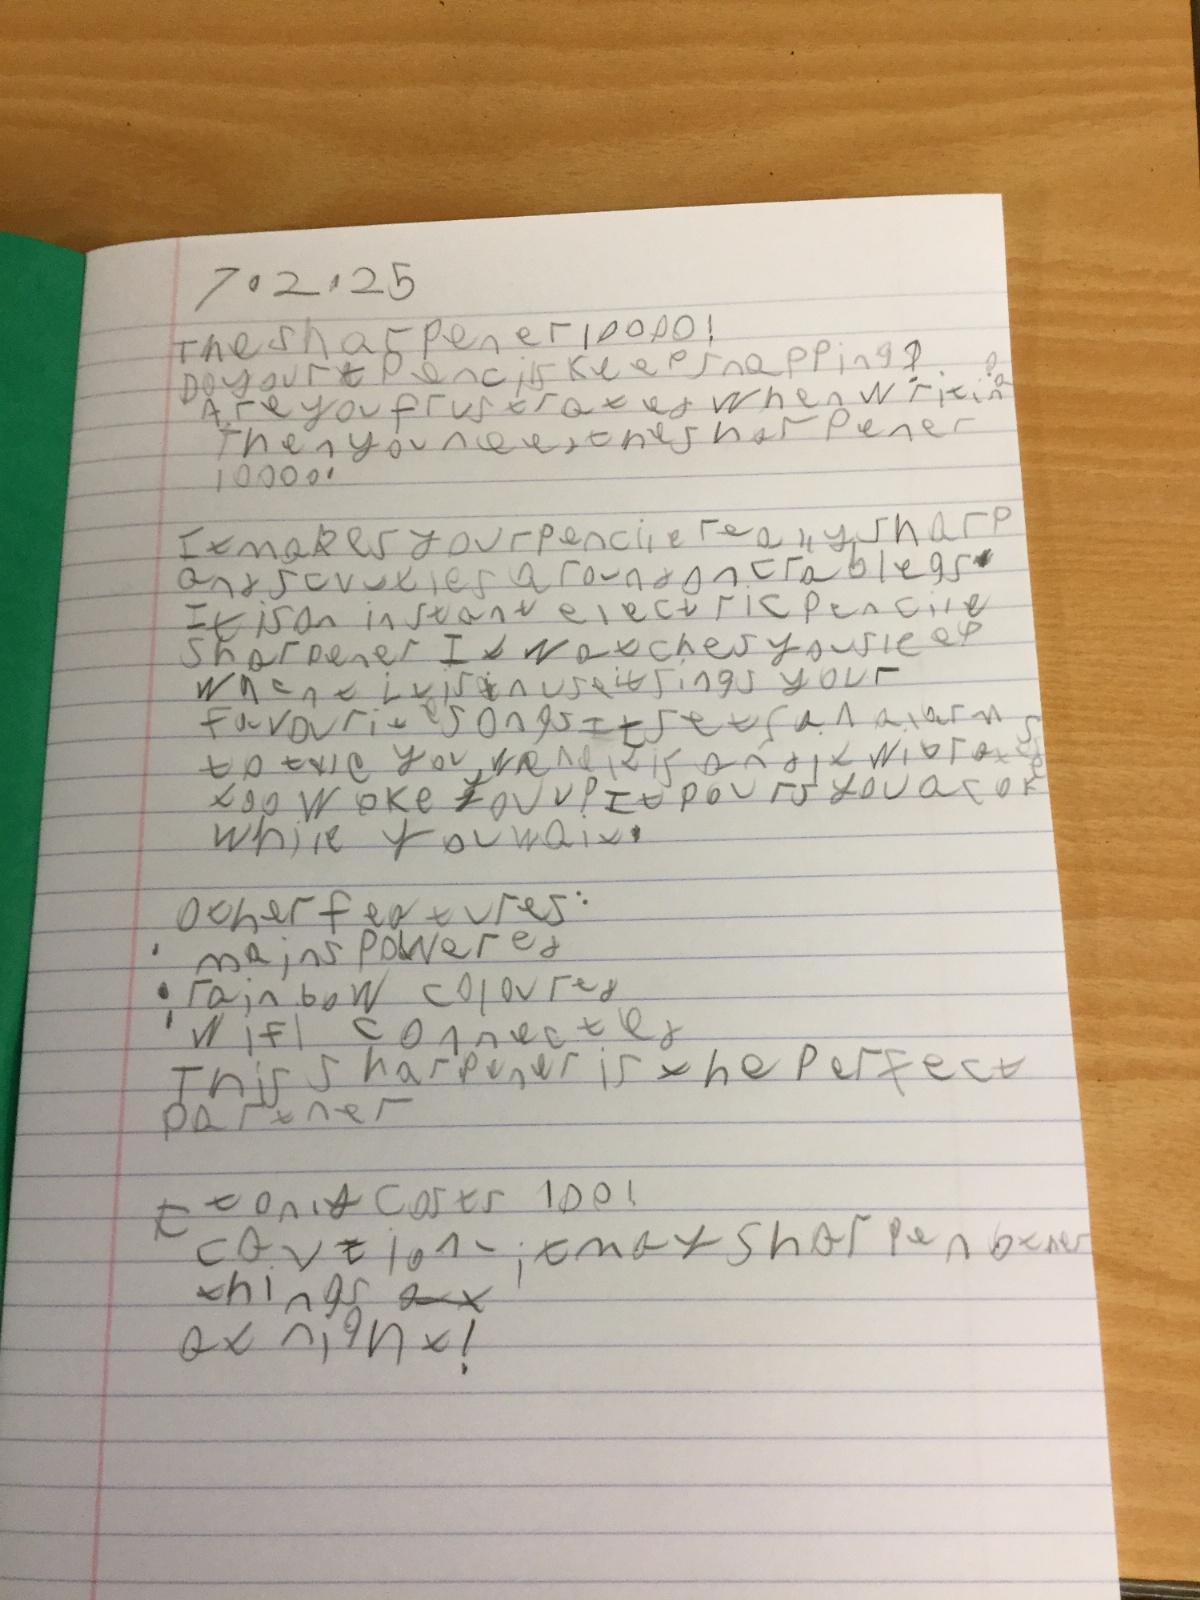 7.2.25
The sharpener 10000!
Do your pencils keep snapping?
Are you frustrated when writing?
Then you need the sharpener
10000.
It makes your pencile really sharp
and scuttles around on crab legs.
It is an instant electric pencile
sharpener It watches you sleep
when it is in use it sings your
favourite songs It sets an alarm
to tell you when it is and it vibrates
too wake you up! It pours you a cok
while you wait.
Other features:
• mains powered
• rainbow coloured
• wifi connected
This sharpener is the perfect
partner
It only costs 100!
caution - it may sharpen other
things at
at night!